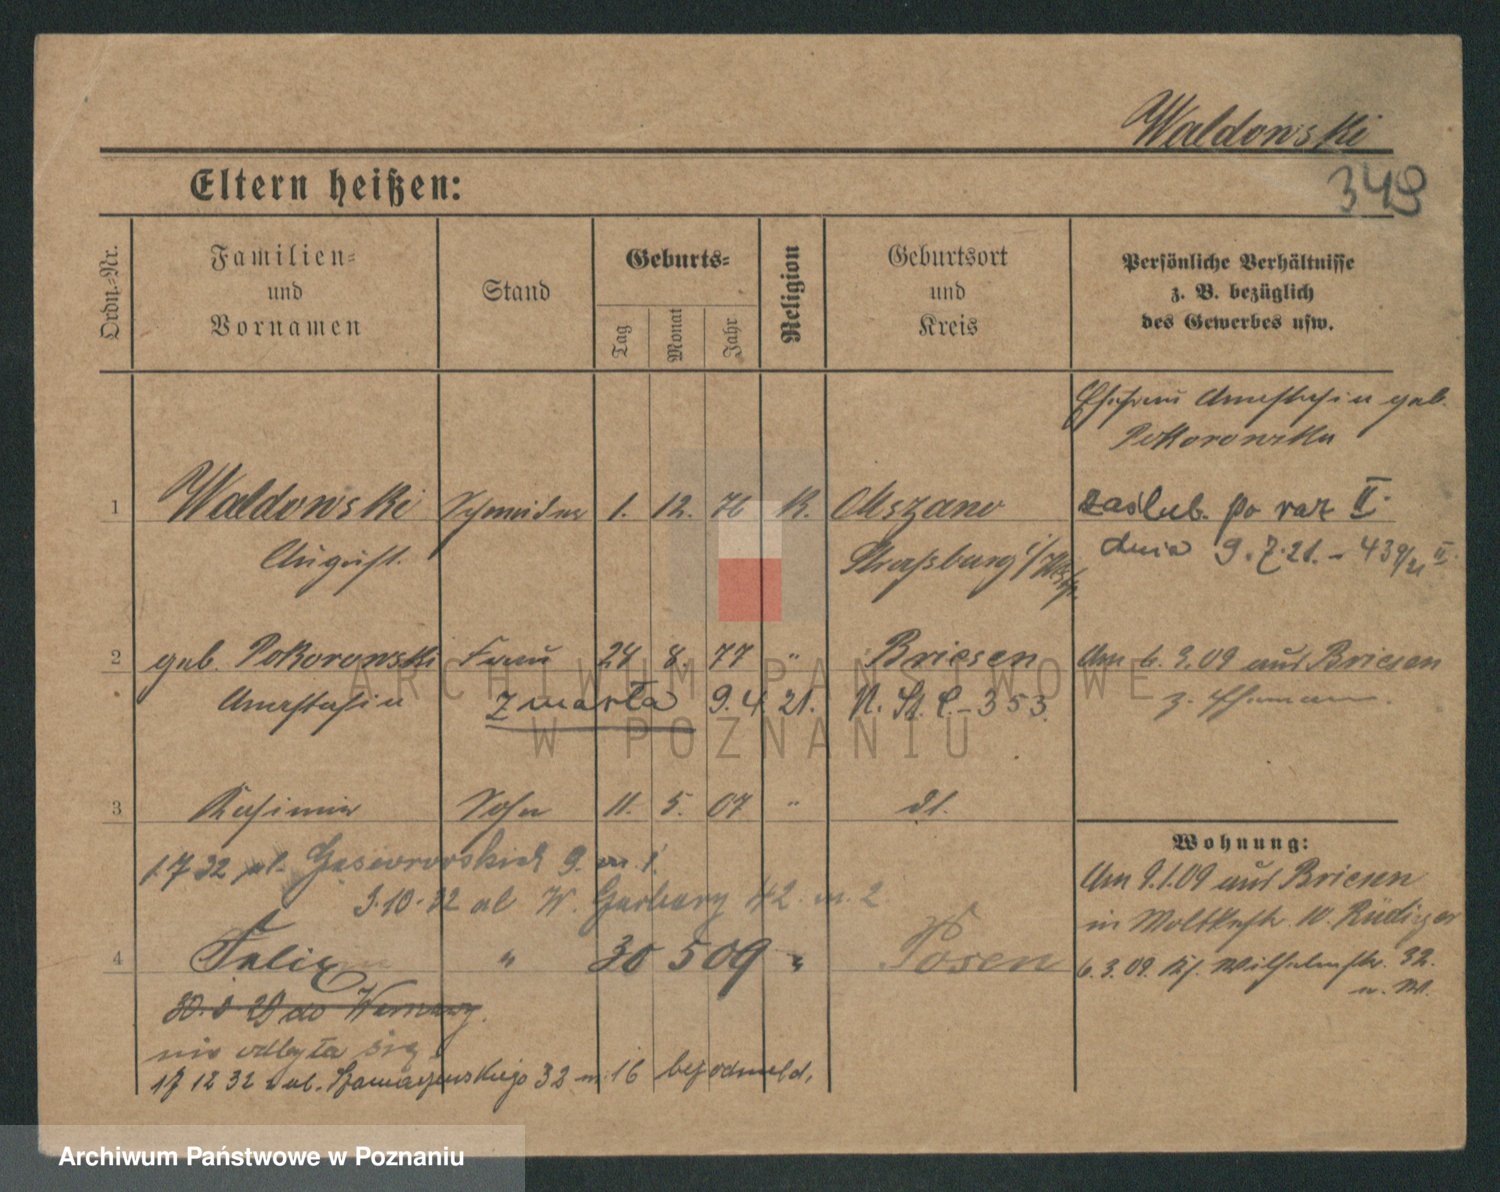 Waldowski
349
Eltern heißen:
Ordn.-Nr.
Familien-
und
Vornamen
Stand
Geburts-
Tag
Monat
Jahr
Religion
Geburtsort
und
Kreis
Persönliche Verhältnisse
z. B. bezüglich
des Gewerbes usw.
Ehefrau Anastasia geb.
Pokorowska
1 Waldowski Schneider 1. 12. 76 K. Mszano
August. Strassburg
zaślub. po raz II.
dnia 9.7.21. - 439/21 II.
2 geb. Pokorowski Frau 24 8. 77 " Briesen
Anastasia zmarła 9.4.21. - 353.
Am 6.3.09 aus Briesen
z. Ehemann.
3 Kasimir Sohn 11. 5. 07 " dt.
1.7 32 ul. 9. m. 1.
3.10.32 ul W. Garbary 42. m. 2
4 Felix " 30 5 09 " Posen
30. 29 do
nie odbyła się
17 12 32 ul. 32 m. 16 bez odmeld.
Wohnung:
Am 9.1.09 aus Briesen
in Moltkestr. 10. Rüdiger
6.3.09. Wilhelmstr. 32.
ARCHIWUM PAŃSTWOWE
W POZNANIU
Archiwum Państwowe w Poznaniu